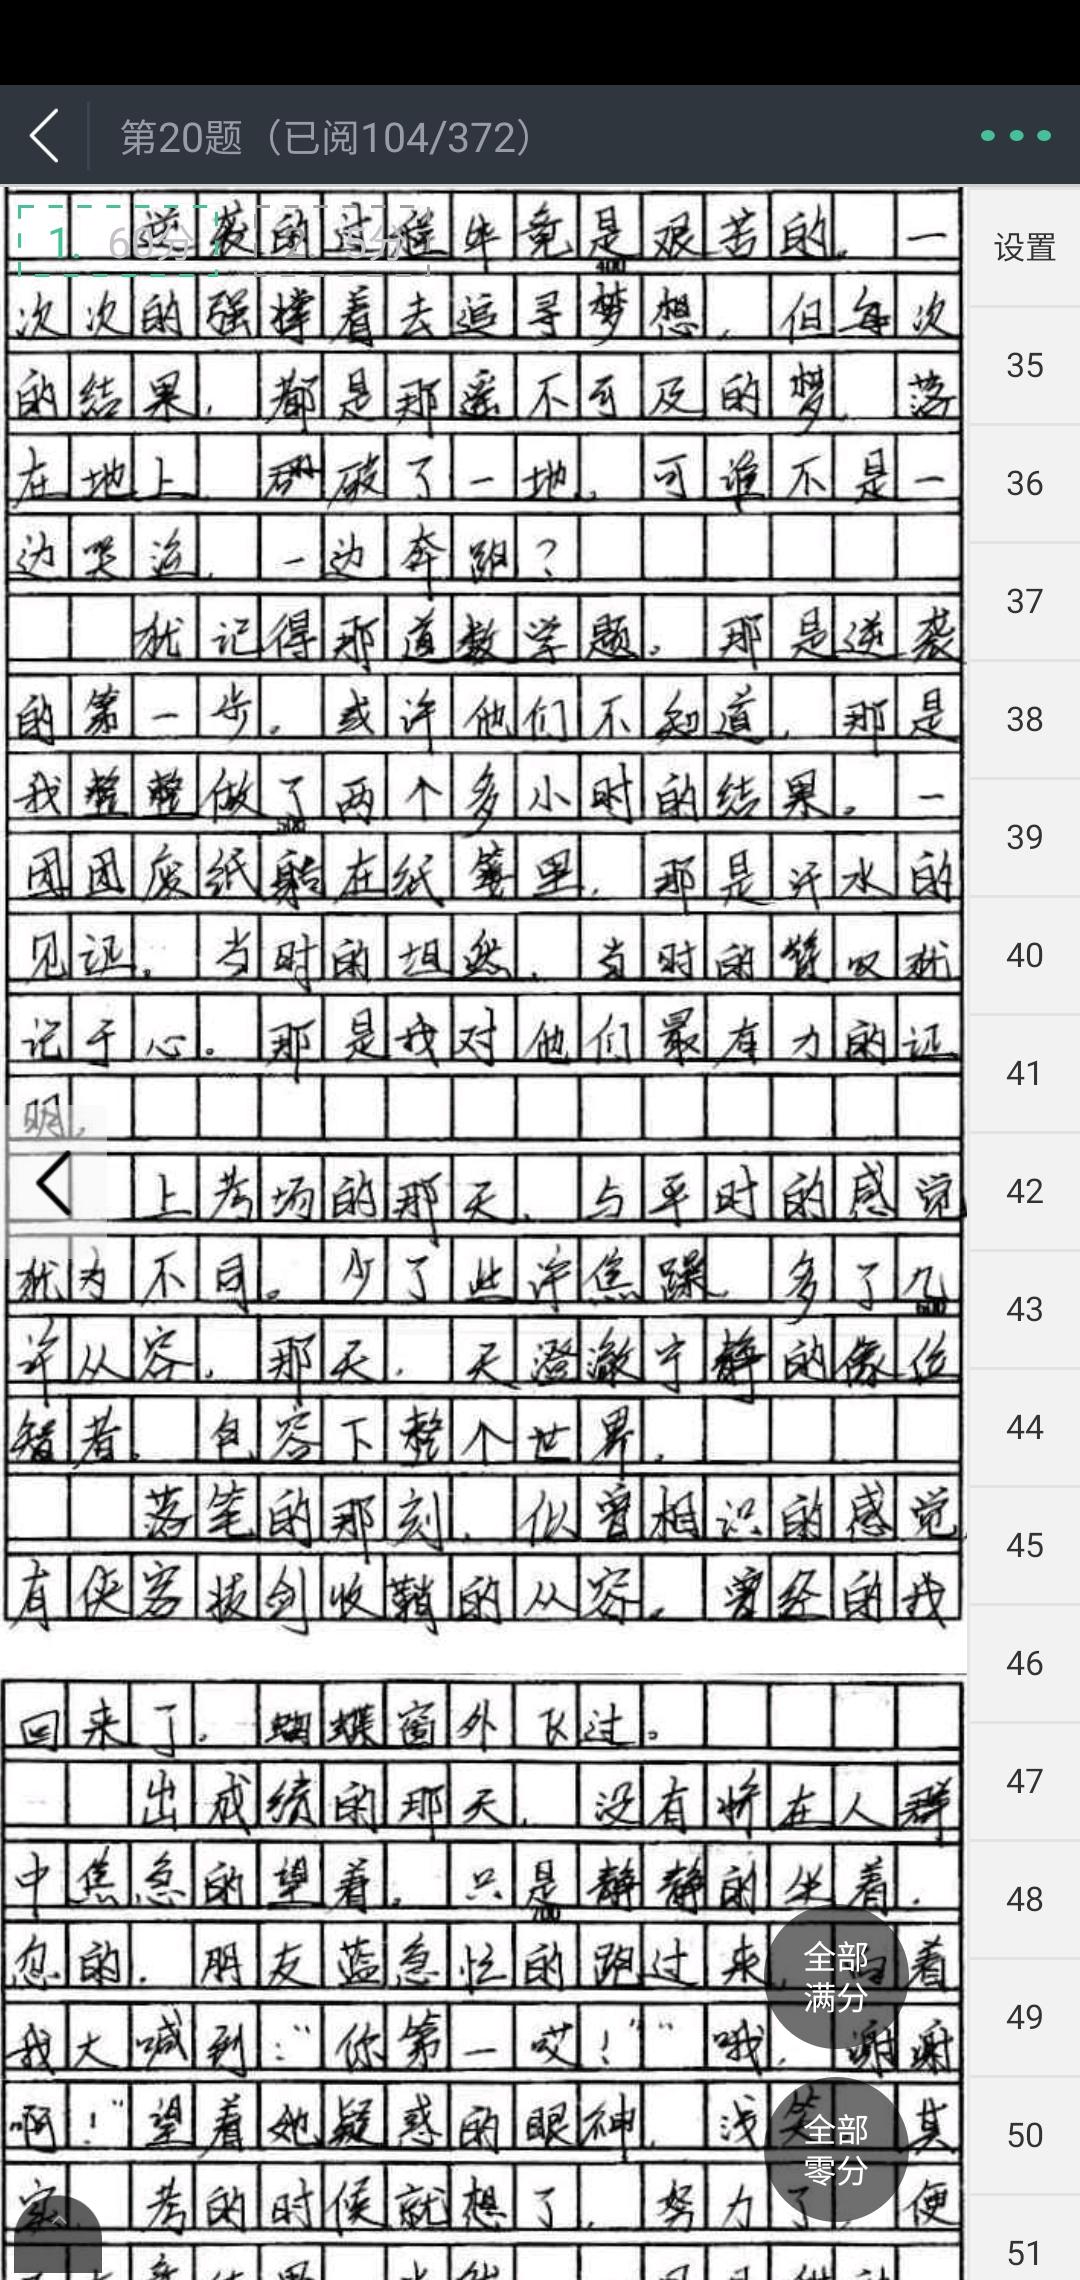 第20题（已阅104/372）
1. 60分 2. 5分
设置
35
36
37
38
39
40
41
42
43
44
45
46
47
48
49
50
51
逆袭的过程毕竟是艰苦的。一
400
次次的强撑着去追寻梦想，但每次
的结果，都是那遥不可及的梦，落
在地上，破了一地。可谁不是一
边哭泣，一边奔跑？
犹记得那道数学题。那是逆袭
的第一步。或许他们不知道，那是
我整整做了两个多小时的结果。一
500
团团废纸躺在纸篓里，那是汗水的
见证。当时的坦然，当时的赞叹犹
记于心。那是我对他们最有力的证
明。
上考场的那天，与平时的感觉
犹为不同。少了些许焦躁，多了几
600
许从容。那天，天澄澈宁静的像位
智者。包容下整个世界。
落笔的那刻，似曾相识的感觉，
有侠客拔剑收鞘的从容。曾经的我
回来了。蝴蝶窗外飞过。
出成绩的那天，没有挤在人群
中焦急的望着，只是静静的坐着。
700
忽的，朋友蓝急忙的跑过来，向着
我大喊到：“你第一哎！”“哦，谢谢
啊！”望着她疑惑的眼神，浅笑，其
实，考的时候就想了，努力了，便
全部满分
全部零分